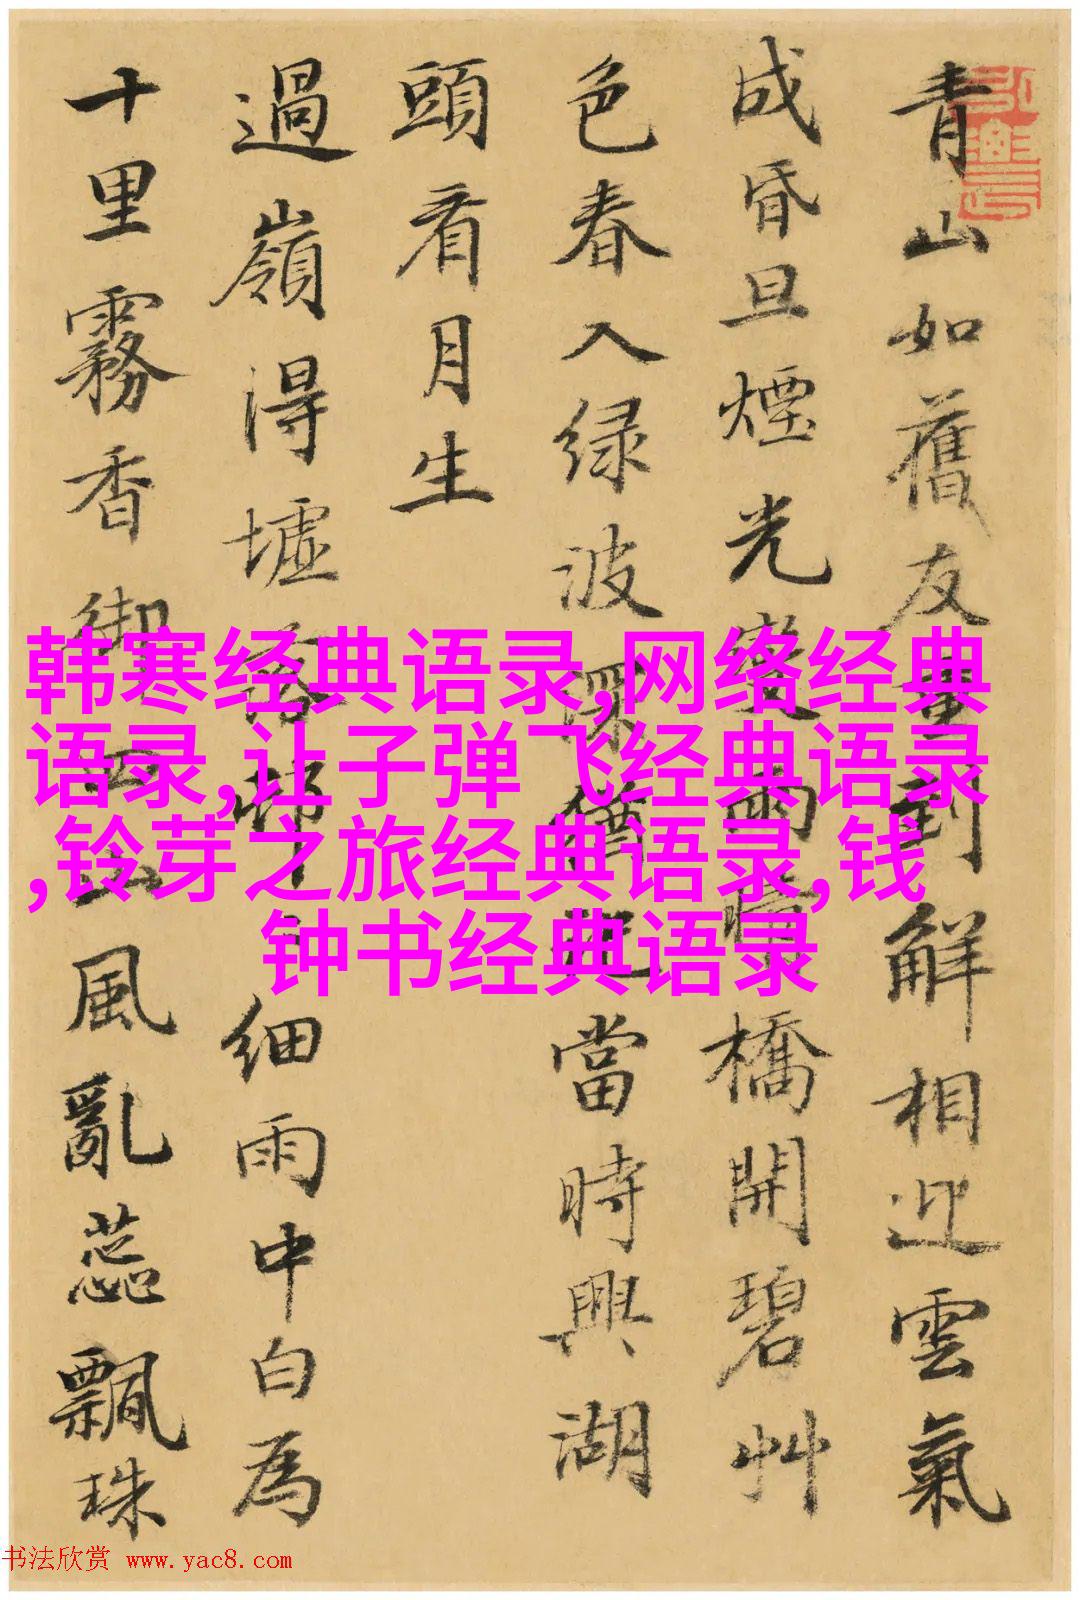 青山如舊友重到解相迎雲氣
成昏旦煙光變雨晴橋開碧艸
色春入绿波深僧當時興湖
頭看月生
過嶺得墟落邨細雨中白為
十里霧香御四山風亂蕊飄珠
韩寒经典语录,网络经典
语录,让子弹飞经典语录
,铃芽之旅经典语录,钱
钟书经典语录
书法欣赏 www.yac8.com